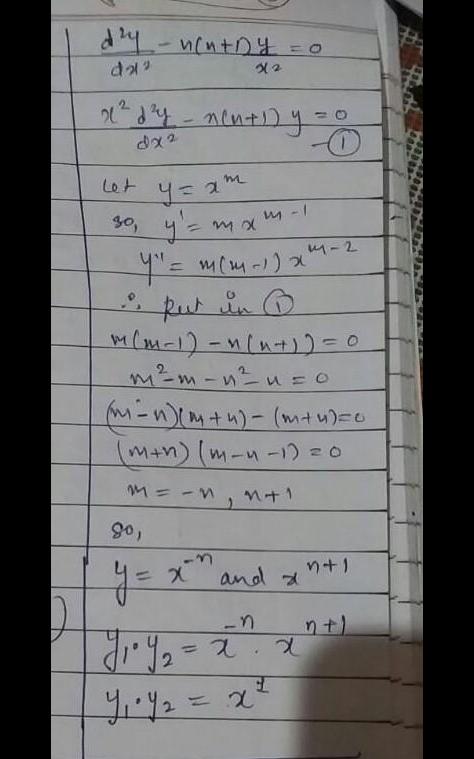 d²y/dx² - n(n+1) y/x² = 0
x² d²y/dx² - n(n+1) y = 0 - ①
Let y = x^m
so, y' = m x^(m-1)
y'' = m(m-1) x^(m-2)
∴ put in ①
m(m-1) - n(n+1) = 0
m² - m - n² - n = 0
(m-n)(m+n) - (m+n) = 0
(m+n)(m-n-1) = 0
m = -n, n+1
so,
y = x^(-n) and x^(n+1)
y₁·y₂ = x^(-n) · x^(n+1)
y₁·y₂ = x^1